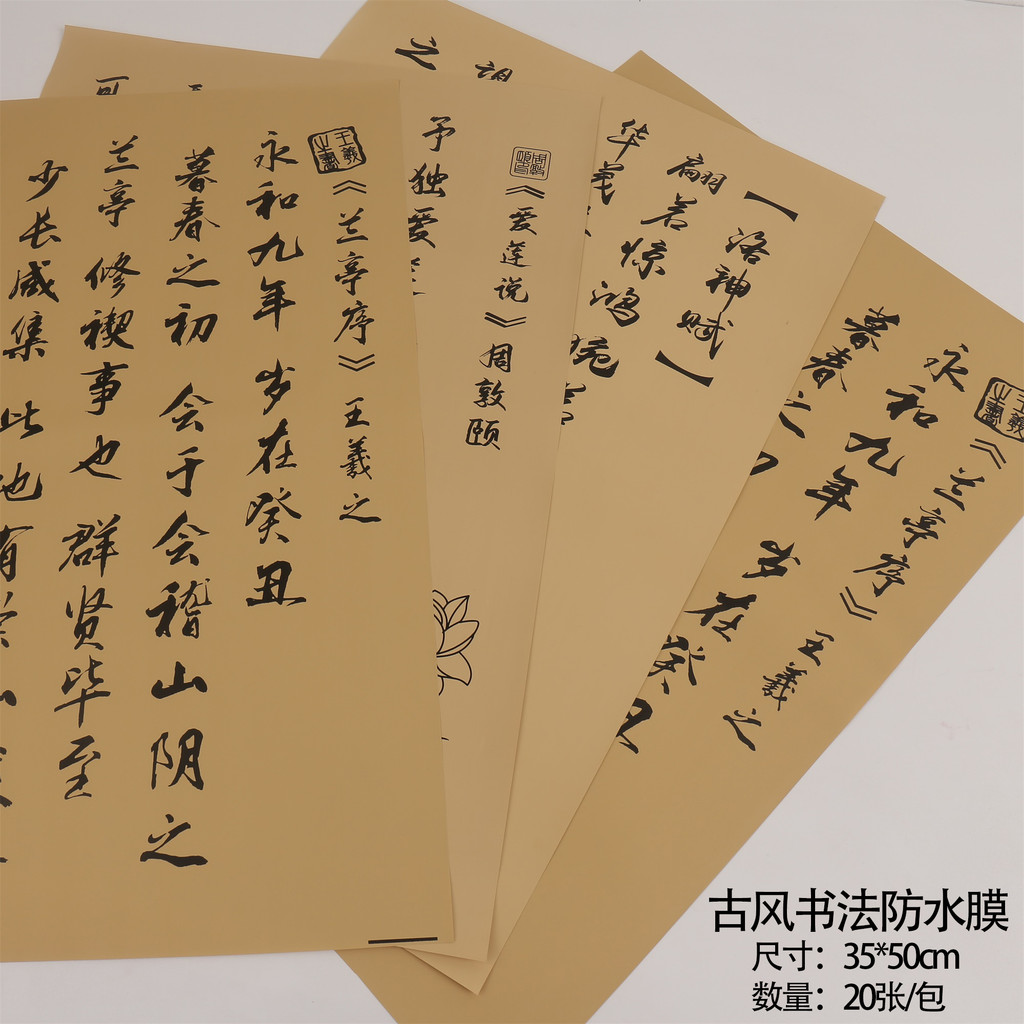 王羲之書
《兰亭序》 王羲之
永和九年 岁在癸丑
暮春之初 会于会稽山阴之
兰亭 修禊事也 群贤毕至
少长咸集 此地有
可
《爱莲说》周敦颐
予独爱
【洛神赋】
翩若惊鸿 婉若
华
之
王羲之書
《兰亭序》 王羲之
永和九年 岁在癸丑
暮春之初
古风书法防水膜
尺寸：35*50cm
数量：20张/包